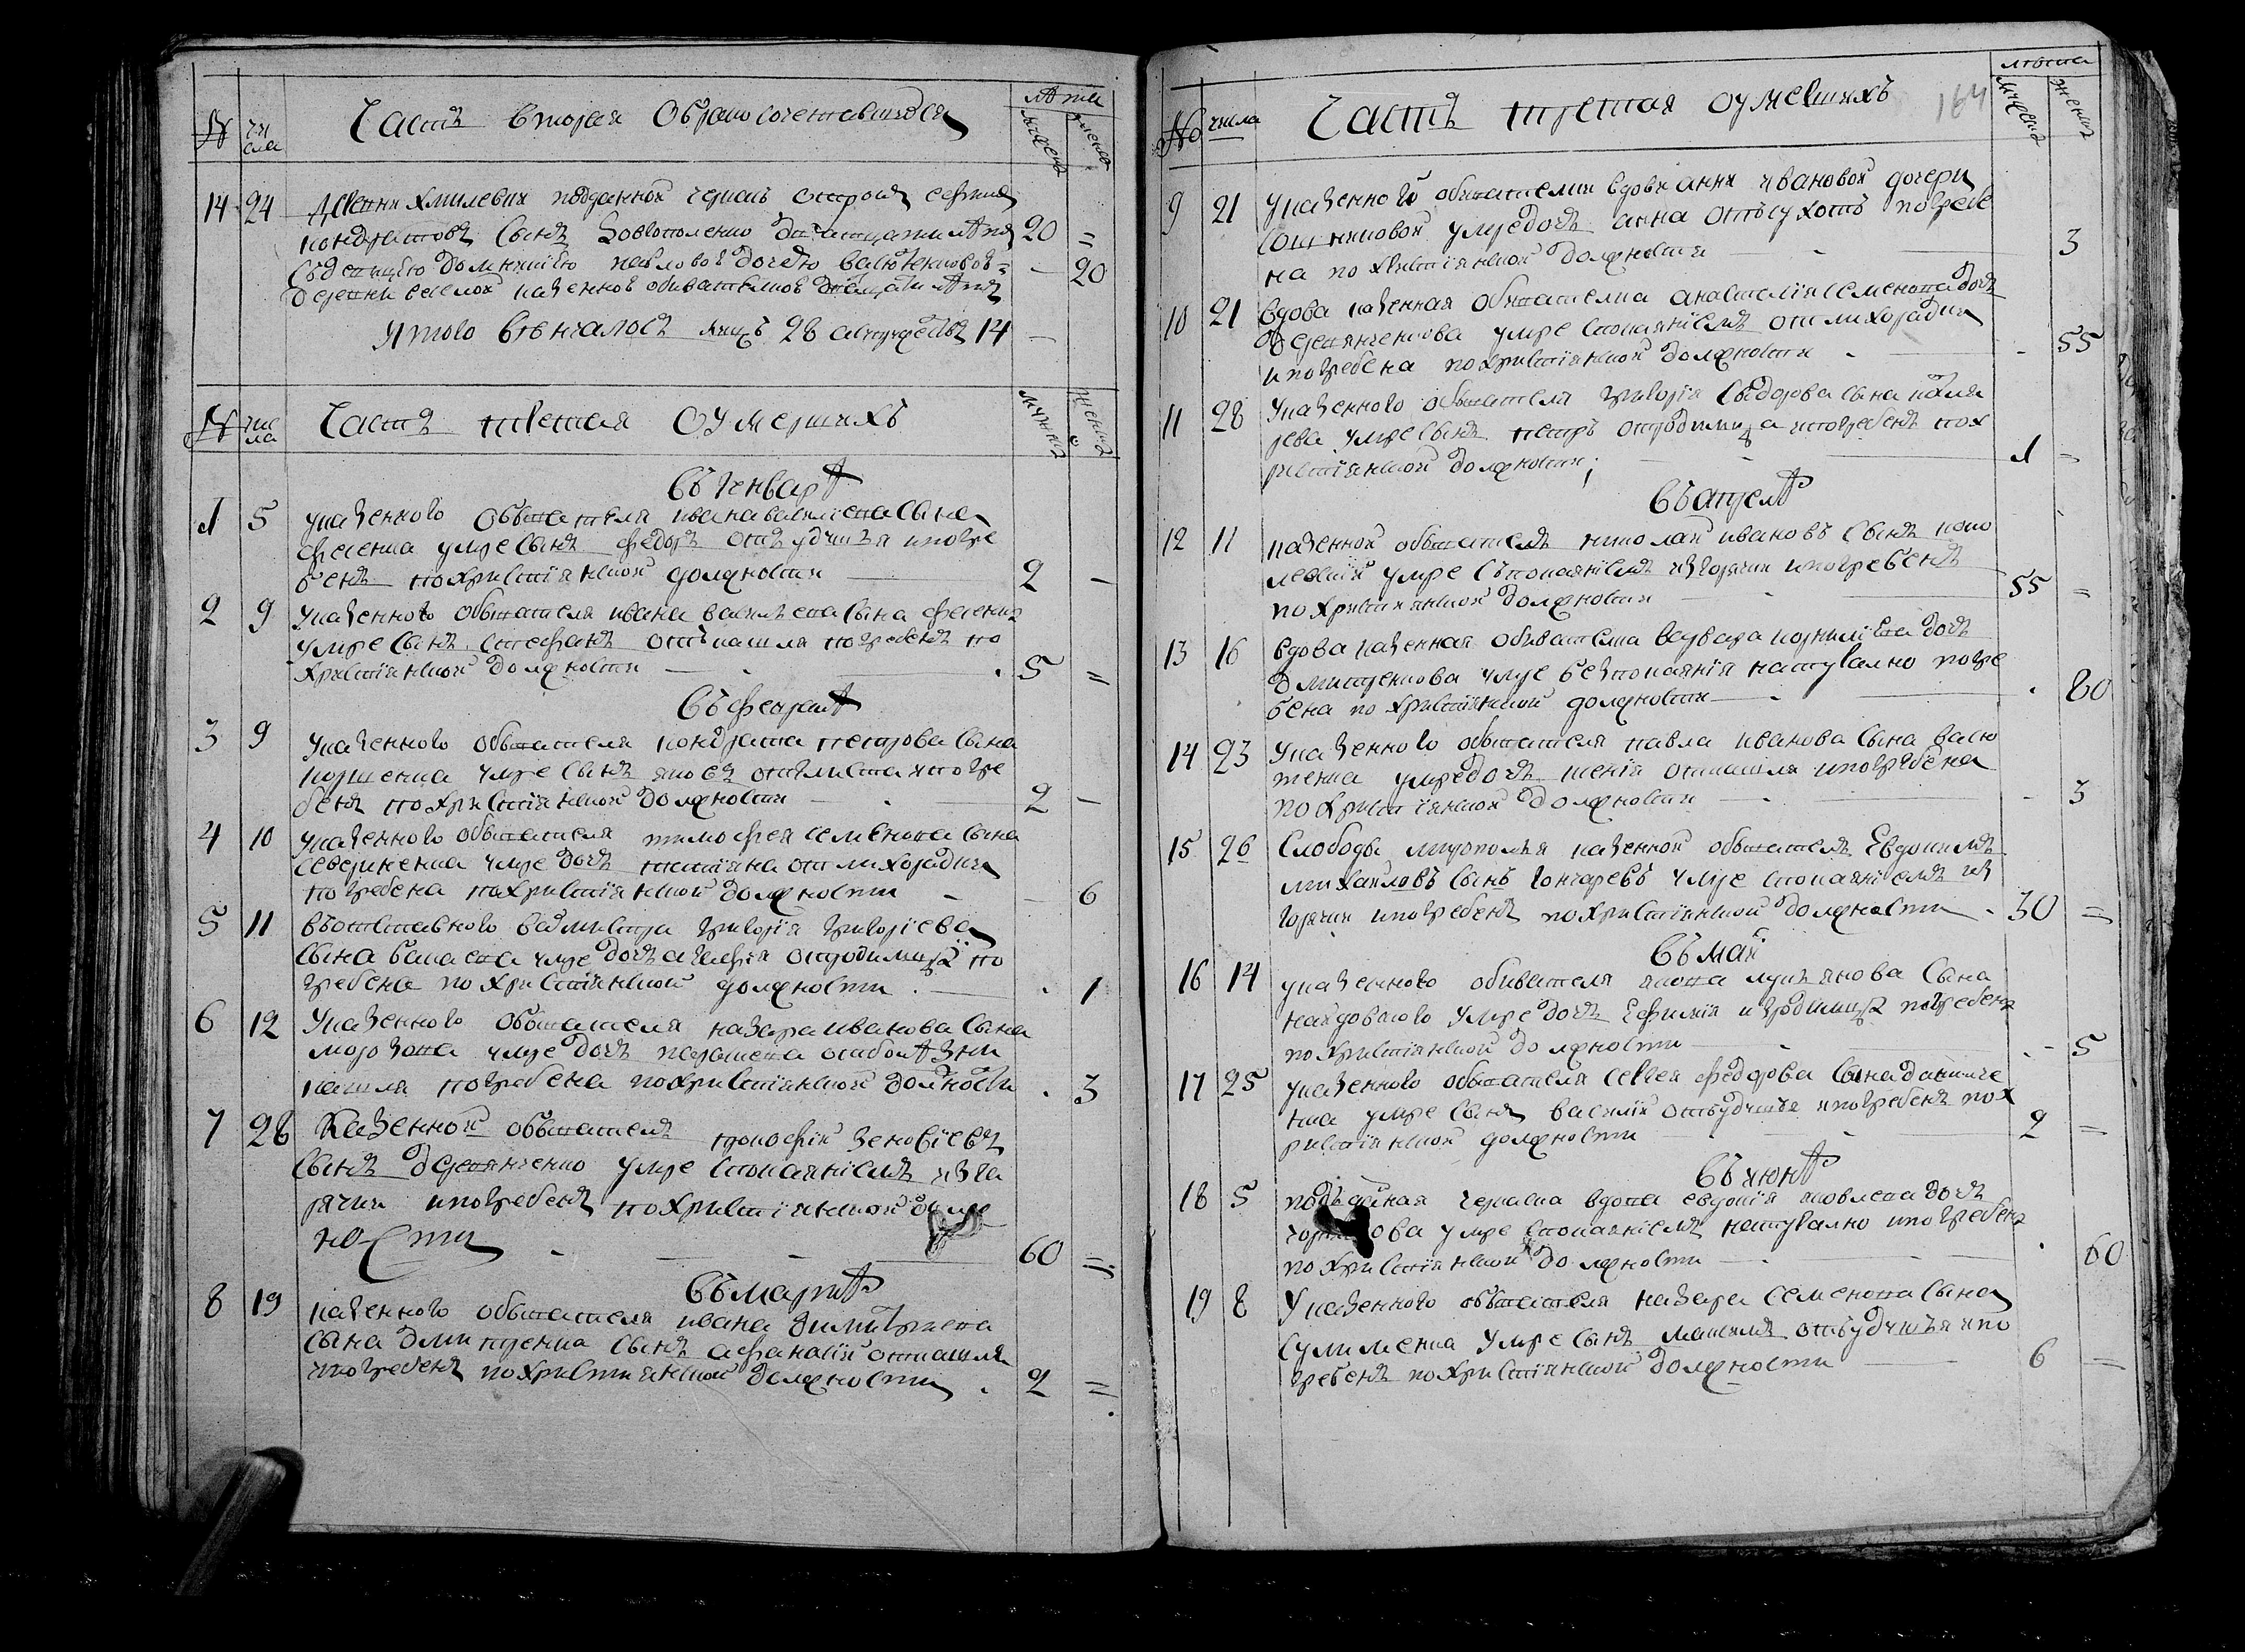 № чи сла Часть вторая Обрако сочетавшихся лѣта мужеска женска
14 24 деревни хмилевки подданной черкасъ сергѣй
кондратовъ сынъ двадцати лѣтъ 20 =
съ девицею павловой дочерю васютенковой = — 20
деревни казенного обивателя двадцати лѣтъ
Итого вѣнчалось лицъ 28 а супружествъ 14 —
№ чис ла Часть третая Оумершихъ мужеска женска
въ генварѣ
1 5 у казенного обывателя ивана василиева сына
фесенка умре сынъ федоръ отъ удушья и погре
бенъ по христіянской должности — 2 —
2 9 у казенного обывателя ивана василиева сына фесенка
умре сынъ стефанъ отъ кашля погребенъ по
христіянской должности — 5 =
въ февралѣ
3 9 у казенного обывателя кондрата петрова сына
коршенка умре сынъ яковъ и погре
бенъ по христіянской должности — 2 —
4 10 у казенного обывателя тимофея семенова сына
севериненка умре дочь татіяна от лихорадки
погребена по христіянской должности — 6
5 11 въ отставного вахмистра григорія григоріева
сына умре дочь агафія от родимца по
гребена по христіянской должности . — . 1
6 12 У казенного обывателя назара иванова сына
морозова умре дочь параскева
кашля погребена по христіянской должности . 3
7 28 Казенной обыватель прокофій зеновіевъ
сынъ деревянченко умре с покаяніемъ из го
рячки и погребенъ по христіянской долж
ности — 60 =
въ мартѣ
8 19 казенного обывателя ивана димитриева
сына дмитренка сынъ афанасій от кашля
и погребенъ по християнской должности . 2 =
№ числа Часть третая оумершихъ 164 лѣта мужеска женска
9 21 у казенной обывателки вдови анни ивановой дочери
умре дочь анна отъ сухотъ погребе
на по христіянской должности — 3
10 21 вдова казенная обывателка анастасія семенова дочь
деревянченкова умре с покаяніемъ от лихорадки
и погребена по христіянской должности . — . 55
11 28 У казенного обывателя григорія сыдорова сына
рева умре сынъ петръ от родимца и погребенъ по х
ристіянской должности; — 1 =
въ апрелѣ
12 11 казенной обыватель николай ивановъ сынъ
умре съ покаяніемъ из горячки и погребенъ
по християнской должности — 55 =
13 16 вдова казенная обивателка варвара корниліева дочь
дмитренкова умре без покаянія натурално погре
бена по христіянской должности — . 80
14 23 У казенного обывателя павла иванова сына васю
тенка умре дочь ксенія от кашля и погребена
по христіянской должности — 3
15 26 Слободы миропольья казенной обыватель Евдокимъ
михайловъ сынъ гончаревъ умре с покаяніемъ из
горячки и погребенъ по христіянской должности . 30 =
въ май
16 14 у казенного обивателя якова лукъянова сына
умре дочь Ефимія из родимца погребена
по христіянской должности — 5
17 25 у казенного обывателя сергея федорова сына даниче
нка умре сынъ василій отъ удушья и погребенъ по х
ристіянской должности 2 =
въ июнѣ
18 5 черкаска вдова евдокія яковлева дочь
умре с покаяніемъ натурално и погребена
по христіянской должности — . 60
19 8 У казенного обывателя назара семенова сына
сулименка умре сынъ максимъ отъ удушья и по
гребенъ по христіянской должности — 6 =